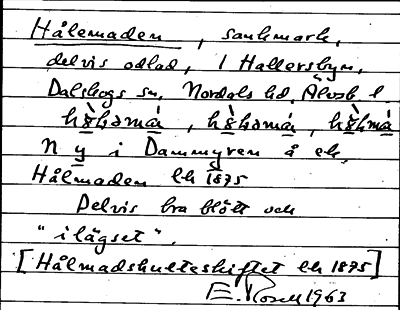 Hålemaden, sankmark,
delvis odlad, i Hallersbyn,
Dalskogs sn, Nordals hd, Älvsb l
N y i Dammyren å ek,
Hålmaden lk 1875
Delvis bra blött och
"ilägset".
[Hålmadskulteskiftet lk 1875]
E. Rosell 1963